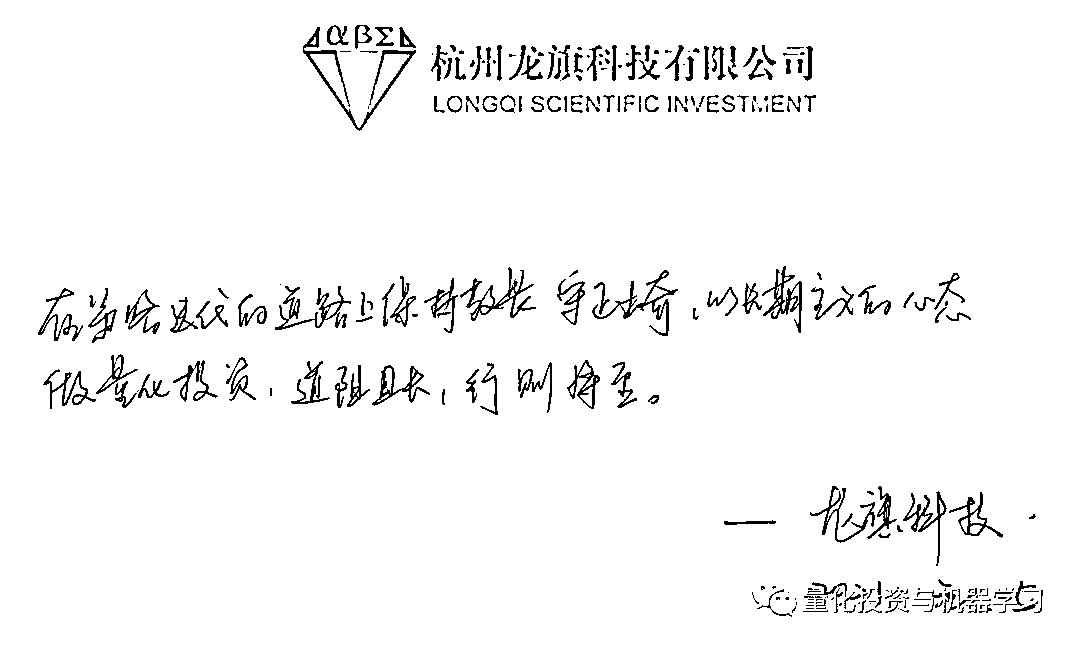 αβΣ
杭州龙旗科技有限公司
LONGQI SCIENTIFIC INVESTMENT
在策略迭代的道路上保持敬畏 守正出奇，以长期主义的心态
做量化投资，道阻且长，行则将至。
— 龙旗科技.
量化投资与机器学习